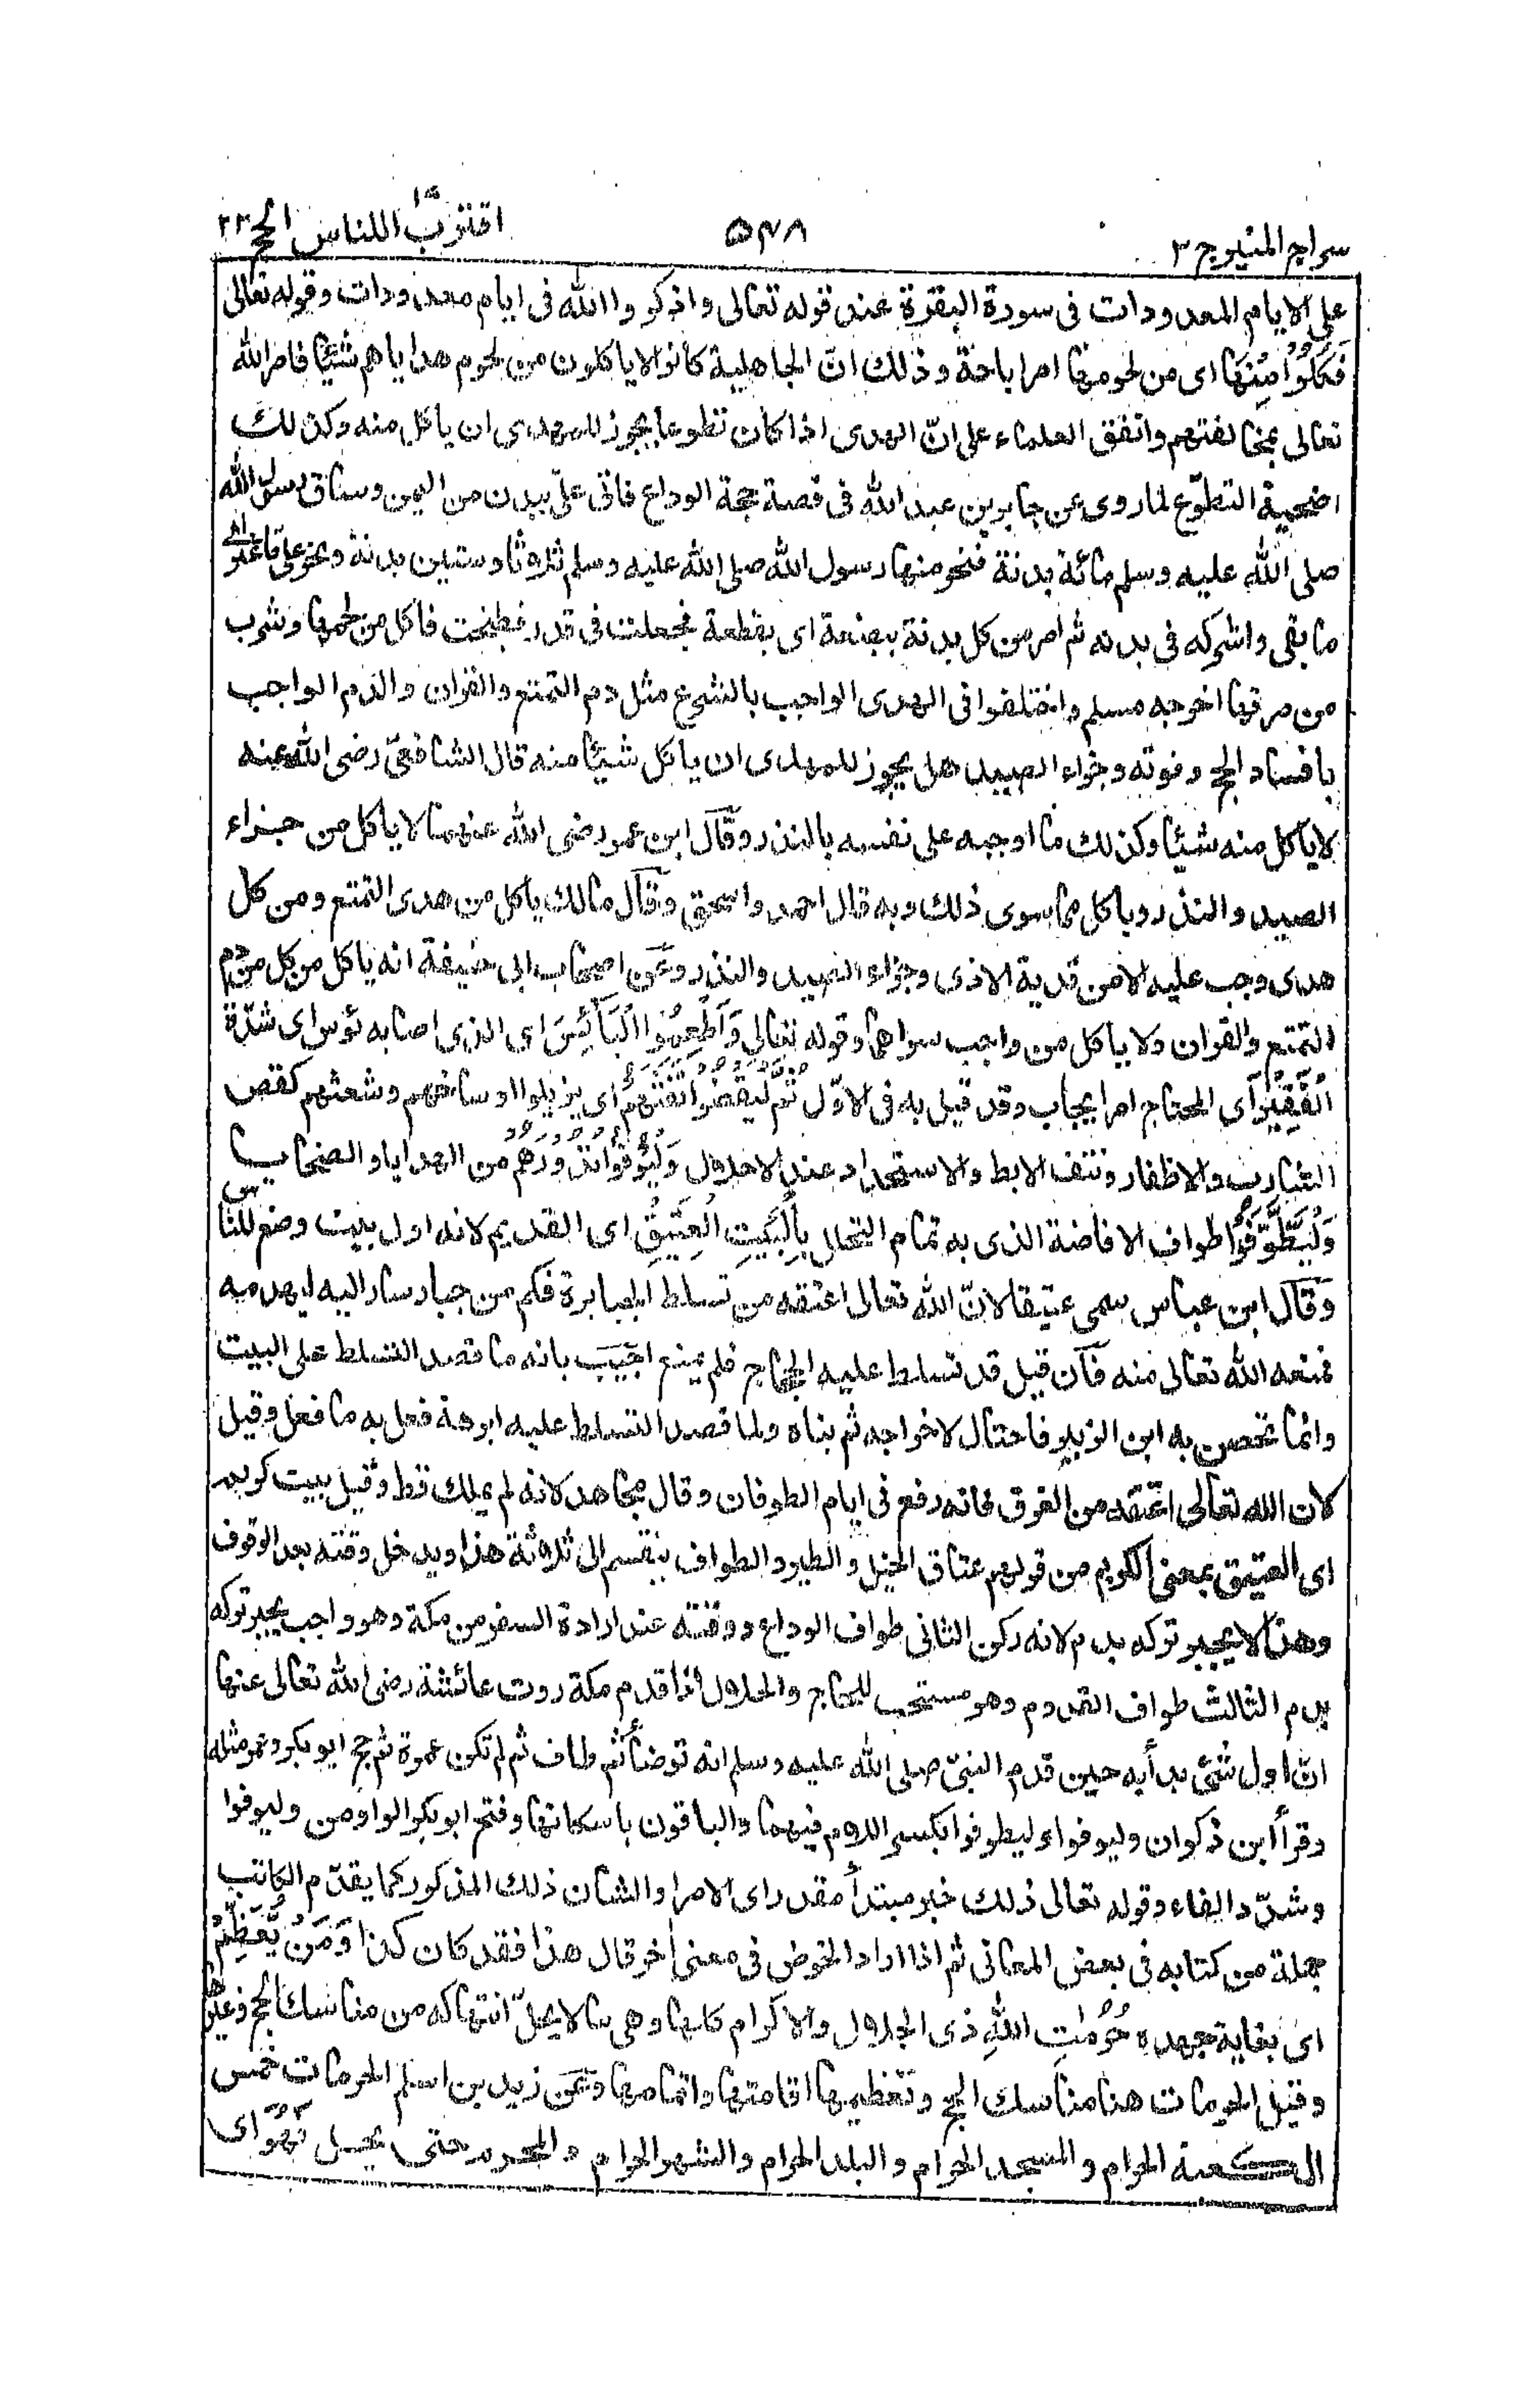 سراج المنير ج ٣ ٥٤٨ اقترب للناس ١٧ الحج ٢٢
على الايام المعدودات فى سورة البقرة عند قوله تعالى واذكروا الله فى ايام معدودات وقوله تعالى
فَكُلُوْا مِنْهَا اى من لحومها امر اباحة وذلك انّ الجاهلية كانوا لا ياكلون من لحوم هداياهم شيئا فامر الله
تعالى بمخالفتهم واتفق العلماء على انّ الهدى اذا كان تطوعا يجوز للمهدى ان ياكل منه وكذلك
اضحية التطوّع لما روى عن جابر بن عبد الله فى قصة حجة الوداع فاتى علىّ ببدن من اليمن وساق رسول الله
صلى الله عليه وسلم مائة بدنة فنحر منها رسول الله صلى الله عليه وسلم ثلاثا وستين بدنة ونحر على
ما بقى واشركه فى بدنه ثم امر من كل بدنة ببضعة اى بقطعة فجعلت فى قدر فطبخت فاكل من لحمها وشرب
من مرقها اخرجه مسلم واختلفوا فى الهدى الواجب بالشرع مثل دم التمتع والقران والدم الواجب
بافساد الحج وفوته وجزاء الصيد هل يجوز للمهدى ان ياكل شيئا منه قال الشافعىّ رضى الله عنه
لا ياكل منه شيئا وكذلك ما اوجبه على نفسه بالنذر وقال ابن عمر رضى الله عنهما لا ياكل من جزاء
الصيد والنذر وياكل مما سوى ذلك وبه قال احمد واسحق وقال مالك ياكل من هدى التمتع ومن كل
هدى وجب عليه الا من فدية الاذى وجزاء الصيد والنذر وعن اصحاب ابى حنيفة انه ياكل من كل من دم
التمتع والقران ولا ياكل من واجب سواهما وقوله تعالى وَاَطْعِمُوا الْبَآئِسَ اى الذى اصابه بؤس اى شدّة
الْفَقِيْرَ اى المحتاج امر ايجاب وقد قيل به فى الاوّل ثُمَّ لْيَقْضُوْا تَفَثَهُمْ اى يزيلوا اوساخهم وشعثهم كقص
الشارب والاظفار ونتف الابط والاستحداد عند الاحلال وَلْيُوْفُوْا نُذُوْرَهُمْ من الهدايا والضحايا
وَلْيَطَّوَّفُوْا طواف الافاضة الذى به تمام التحلل بِالْبَيْتِ الْعَتِيْقِ اى القديم لانه اول بيت وضع للناس
وقال ابن عباس سمى عتيقا لانّ الله تعالى اعتقه من تسلط الجبابرة فكم من جبار سار اليه ليهدمه
فمنعه الله تعالى منه فان قيل قد تسلط عليه الحجاج فلم يمنع اجيب بانه ما قصد التسلط على البيت
وانما تحصن به ابن الزبير فاحتال لاخراجه ثم بناه ولما قصد التسلط عليه ابرهة فعل به ما فعل وقيل
لان الله تعالى اعتقه من الغرق فانه رفع فى ايام الطوفان وقال مجاهد لانه لم يملك قط وقيل بيت كريم
اى العتيق بمعنى الكريم من قولهم عتاق الخيل والطير والطواف ينقسم الى ثلاثة هذا ويدخل وقته بعد الوقوف
وهذا لا يجبر تركه بدم لانه ركن الثانى طواف الوداع ووقته عند ارادة السفر من مكة وهو واجب يجبر تركه
بدم الثالث طواف القدوم وهو مستحب للحاج والحلال اذا قدم مكة روت عائشة رضى الله تعالى عنها
انّ اول شئ بدأ به حين قدم النبىّ صلى الله عليه وسلم انه توضأ ثم طاف ثم لم تكن عمرة ثم حج ابو بكر وعمر مثله
وقرأ ابن ذكوان وليوفوا وليطوفوا بكسر اللام فيهما والباقون باسكانها وفتح ابو بكر الواو من وليوفوا
وشدّد الفاء وقوله تعالى ذلك خبر مبتدأ مقدر اى الامر او الشان ذلك المذكور كما يقدّم الكاتب
جملة من كتابه فى بعض المعانى ثم اذا اراد الخوض فى معنى اخر قال هذا فقد كان كذا وَمَنْ يُّعَظِّمْ
اى بغاية جهده حُرُمٰتِ اللهِ ذى الجلال والاكرام كلها وهى ما لا يحلّ انتهاكه من مناسك الحج وغيرها
وقيل الحرمات هنا مناسك الحج وتعظيمها اقامتها واتمامها وعن زيد بن اسلم الحرمات خمس
الكعبة الحرام والمسجد الحرام والبلد الحرام والشهر الحرام والمحرم حتى يحل فَهُوَ اى